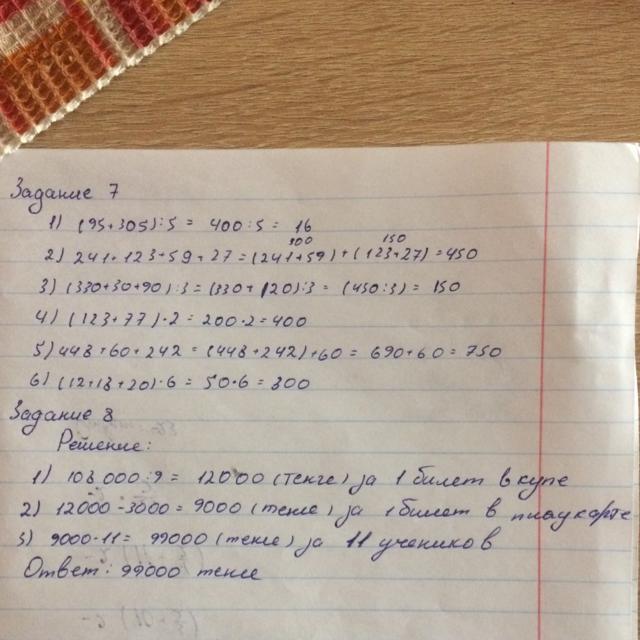 Задание 7
1) (95+305):5 = 400:5 = 16
300 150
2) 241+123+59+27 = (241+59)+(123+27)=450
3) (330+30+90):3=(330+120):3= (450:3) = 150
4) (123+77)·2=200·2=400
5) 448+60+242 = (448+242)+60= 690+60=750
6) (12+18+20)·6 = 50·6=300
Задание 8
Решение:
1) 108 000:9 = 12000 (тенге) за 1 билет в купе
2) 12000-3000= 9000 (тенге) за 1 билет в плацкарте
3) 9000·11= 99000 (тенге) за 11 учеников
Ответ: 99000 тенге